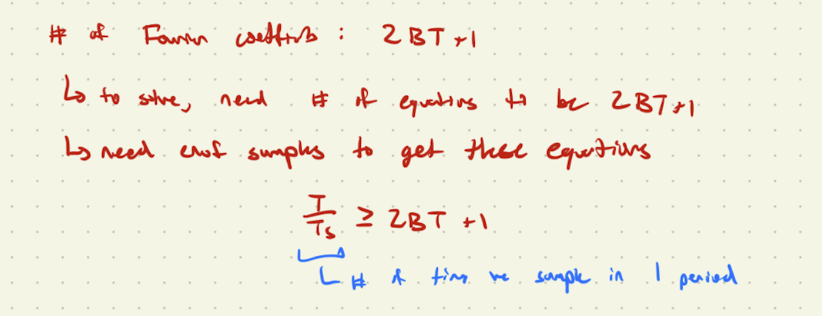 # of Fourier coeffients : 2BT+1
↳ to solve, need # of equations to be 2BT+1
↳ need enof samples to get these equations
T/Ts ≥ 2BT +1
↳ # of times we sample in 1 period